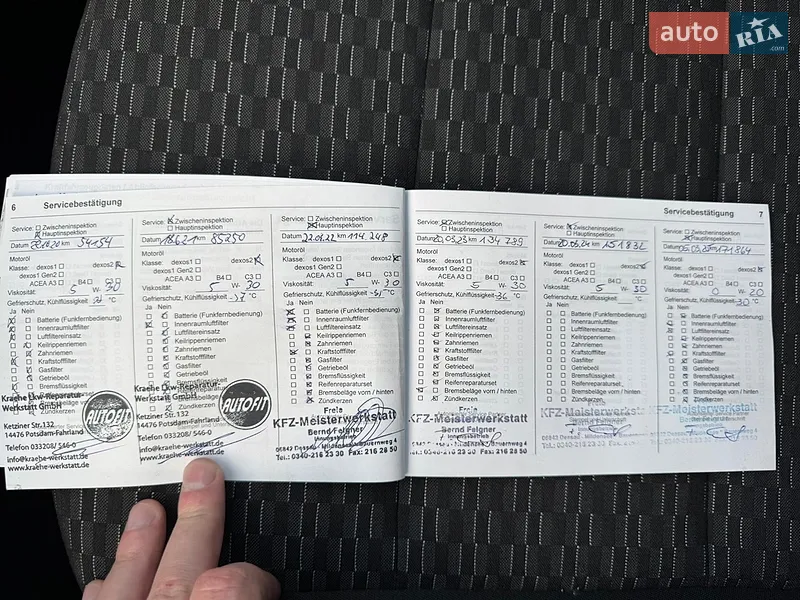 auto RIA
.com
6 Servicebestätigung
Service: Zwischeninspektion
Hauptinspektion
Datum km 54154
Motoröl
Klasse: dexos1 dexos2
dexos1 Gen2
ACEA A3 B4 C3
Viskosität: 5 W- 30
Gefrierschutz, Kühlflüssigkeit °C
Ja Nein
Batterie (Funkfernbedienung)
Innenraumluftfilter
Luftfiltereinsatz
Keilrippenriemen
Zahnriemen
Kraftstofffilter
Gasfilter
Getriebeöl
Bremsflüssigkeit
Zündkerzen
Kraehe Lkw-Reparatur-
Werkstatt GmbH
AUTOFIT
Ketziner Str.132
14476 Potsdam-Fahrland
Telefon 033208/ 546-0
info@kraehe-werkstatt.de
www.kraehe-werkstatt.de
Service: Zwischeninspektion
Hauptinspektion
Datum 18.6.21 km 85250
Motoröl
Klasse: dexos1 dexos2
dexos1 Gen2
ACEA A3 B4 C3
Viskosität: 5 W- 30
Gefrierschutz, Kühlflüssigkeit °C
Ja Nein
Batterie (Funkfernbedienung)
Innenraumluftfilter
Luftfiltereinsatz
Keilrippenriemen
Zahnriemen
Kraftstofffilter
Gasfilter
Getriebeöl
Bremsflüssigkeit
Zündkerzen
Kraehe Lkw-Reparatur-
Werkstatt GmbH
AUTOFIT
Ketziner Str.132
14476 Potsdam-Fahrland
Telefon 033208/ 546-0
info@kraehe-werkstatt.de
www.kraehe-werkstatt.de
Service: Zwischeninspektion
Hauptinspektion
Datum 22.06.22 km 114.248
Motoröl
Klasse: dexos1 dexos2
dexos1 Gen2
ACEA A3 B4 C3
Viskosität: 5 W- 30
Gefrierschutz, Kühlflüssigkeit °C
Ja Nein
Batterie (Funkfernbedienung)
Innenraumluftfilter
Luftfiltereinsatz
Keilrippenriemen
Zahnriemen
Kraftstofffilter
Gasfilter
Getriebeöl
Bremsflüssigkeit
Reifenreparaturset
Bremsbeläge vorn / hinten
Zündkerzen
Freie
KFZ-Meisterwerkstatt
Bernd Felgner
Innungsbetrieb
Tel.: 0340-216 23 30 Fax: 216 28 50
Servicebestätigung 7
Service: Zwischeninspektion
Hauptinspektion
Datum km 134 739
Motoröl
Klasse: dexos1 dexos2
dexos1 Gen2
ACEA A3 B4 C3
Viskosität: 5 W- 30
Gefrierschutz, Kühlflüssigkeit -36 °C
Ja Nein
Batterie (Funkfernbedienung)
Innenraumluftfilter
Luftfiltereinsatz
Keilrippenriemen
Zahnriemen
Kraftstofffilter
Gasfilter
Getriebeöl
Bremsflüssigkeit
Reifenreparaturset
Bremsbeläge vorn / hinten
Zündkerzen
KFZ-Meisterwerkstatt
Bernd Felgner
Innungsbetrieb
Tel.: 0340-216 23 30 Fax: 216 28 50
Service: Zwischeninspektion
Hauptinspektion
Datum 20.06.24 km
Motoröl
Klasse: dexos1 dexos2
dexos1 Gen2
ACEA A3 B4 C3
Viskosität: 5 W- 30
Gefrierschutz, Kühlflüssigkeit °C
Ja Nein
Batterie (Funkfernbedienung)
Innenraumluftfilter
Luftfiltereinsatz
Keilrippenriemen
Zahnriemen
Kraftstofffilter
Gasfilter
Getriebeöl
Bremsflüssigkeit
Reifenreparaturset
Bremsbeläge vorn / hinten
Zündkerzen
KFZ-Meisterwerkstatt
Service: Zwischeninspektion
Hauptinspektion
Datum km 171864
Motoröl
Klasse: dexos1 dexos2
dexos1 Gen2
ACEA A3 B4 C3
Viskosität: 0 W- 20
Gefrierschutz, Kühlflüssigkeit -30 °C
Ja Nein
Batterie (Funkfernbedienung)
Innenraumluftfilter
Luftfiltereinsatz
Keilrippenriemen
Zahnriemen
Kraftstofffilter
Gasfilter
Getriebeöl
Bremsflüssigkeit
Reifenreparaturset
Bremsbeläge vorn / hinten
Zündkerzen